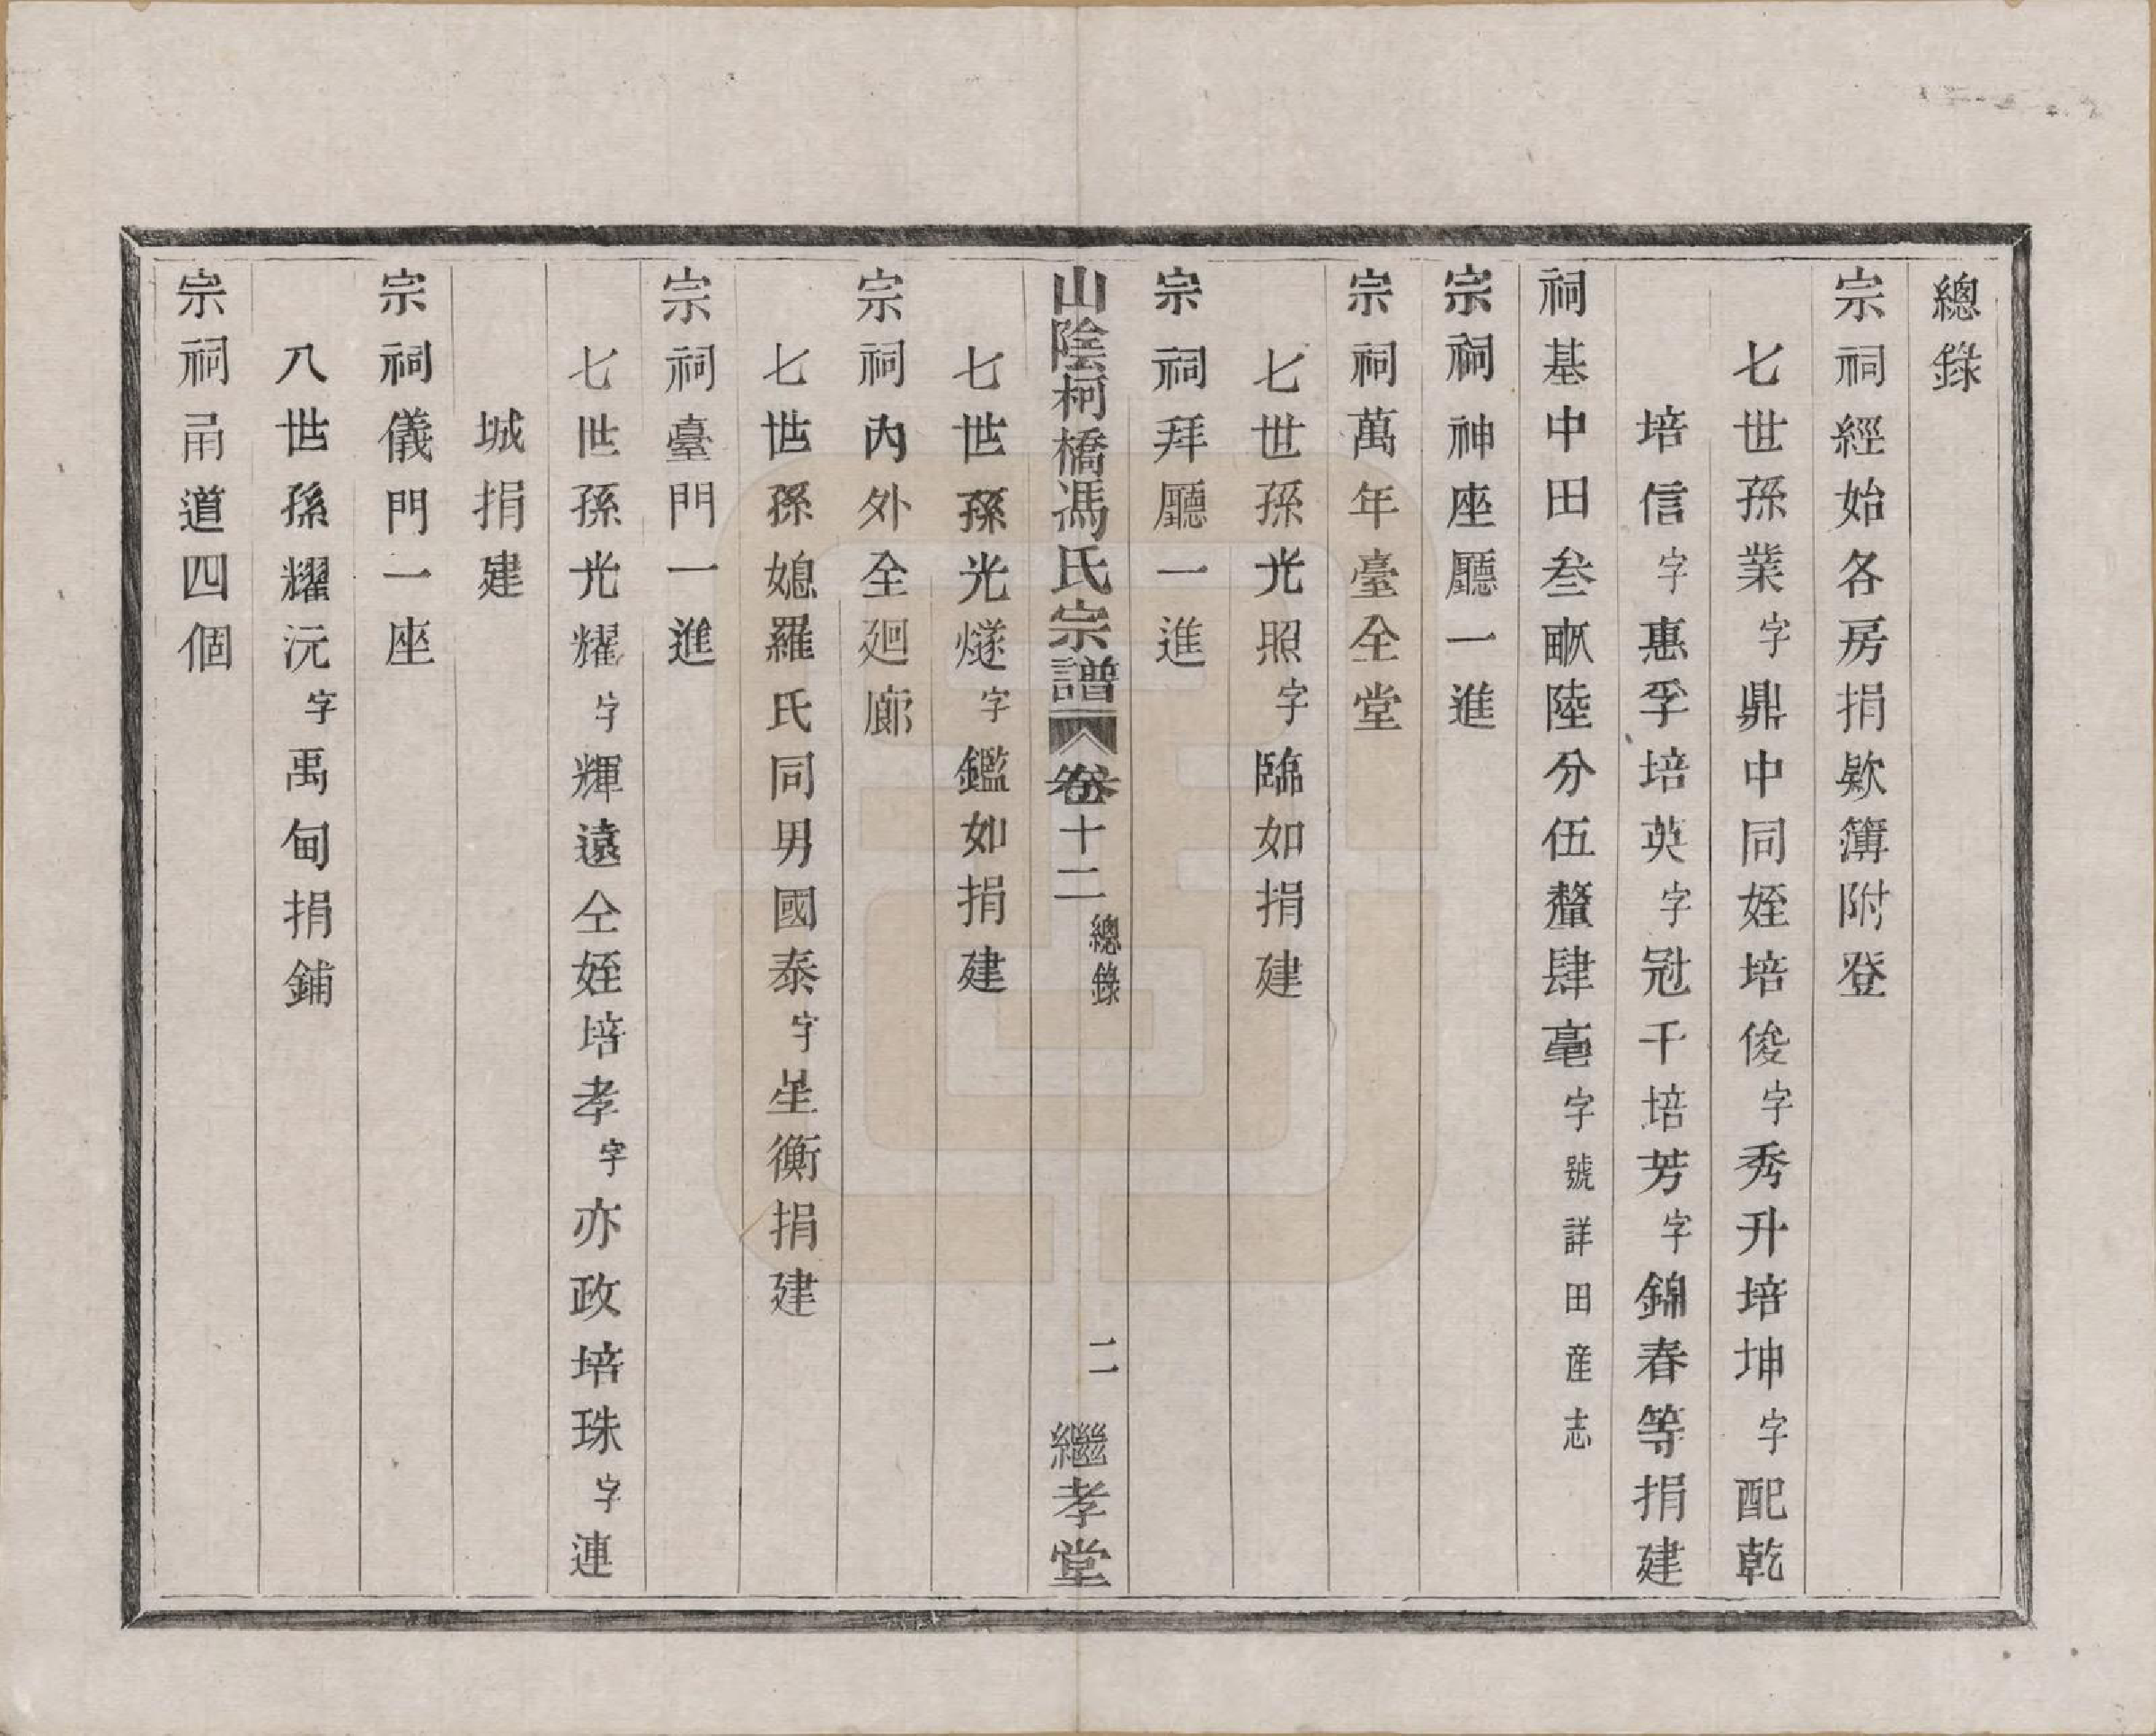 總錄
宗祠經始各房捐欵簿附登
七世孫業字鼎中同姪培俊字秀升培坤字配乾
培信字惠孚培英字冠千培芳字錦春等捐建
祠基中田叁畝陸分伍釐肆毫字號詳田産志
宗祠神座廳一進
宗祠萬年臺全堂
七世孫光照字臨如捐建
宗祠拜廳一進
山陰柯橋馮氏宗譜 卷十二 總錄 二 繼孝堂
七世孫光燧字鑑如捐建
宗祠內外全廻廊
七世孫媳羅氏同男國泰字星衡捐建
宗祠臺門一進
七世孫光耀字輝遠仝姪培孝字亦政培珠字連
城捐建
宗祠儀門一座
八世孫耀沅字禹甸捐鋪
宗祠甬道四個